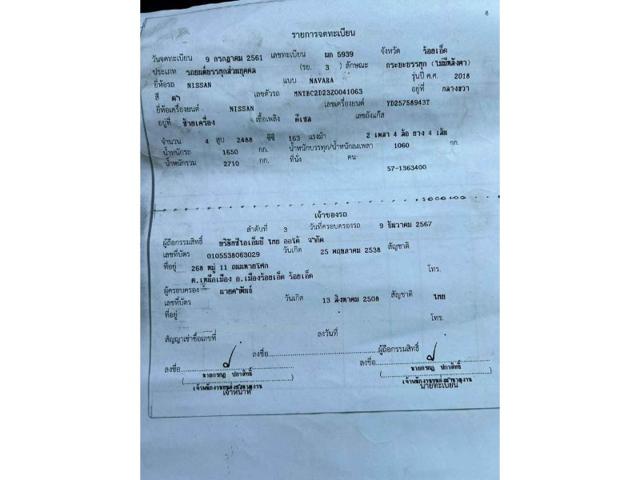 รายการจดทะเบียน
วันจดทะเบียน 9 กรกฎาคม 2561 เลขทะเบียน ผก 5939 จังหวัด ร้อยเอ็ด
ประเภท รถยนต์บรรทุกส่วนบุคคล (รย. 3 ) ลักษณะ กระบะบรรทุก (ไม่มีหลังคา)
ยี่ห้อรถ NISSAN แบบ NAVARA รุ่นปี ค.ศ. 2018
สี ดำ เลขตัวรถ MNTBC2D23Z0041063 อยู่ที่ กลางขวา
ยี่ห้อเครื่องยนต์ NISSAN เลขเครื่องยนต์ YD25758943T
อยู่ที่ ซ้ายเครื่อง เชื้อเพลิง ดีเซล เลขถังแก๊ส
จำนวน 4 สูบ 2488 ซีซี 163 แรงม้า 2 เพลา 4 ล้อ ยาง 4 เส้น
น้ำหนักรถ 1650 กก. น้ำหนักบรรทุก/น้ำหนักลงเพลา 1060 กก.
น้ำหนักรวม 2710 กก. ที่นั่ง คน
57-1363400
เจ้าของรถ
ลำดับที่ 3 วันที่ครอบครองรถ 9 ธันวาคม 2567
ผู้ถือกรรมสิทธิ์ จำกัด
เลขที่บัตร 0105538063029 วันเกิด 25 พฤษภาคม 2538 สัญชาติ
ที่อยู่ 268 หมู่ 11 ถนนเทวาภิบาล โทร.
ต.เหนือเมือง อ.เมืองร้อยเอ็ด ร้อยเอ็ด
ผู้ครอบครอง
เลขที่บัตร วันเกิด 13 สิงหาคม 2508 สัญชาติ ไทย
ที่อยู่ โทร.
สัญญาเช่าซื้อเลขที่ ลงวันที่
ลงชื่อ ผู้ถือกรรมสิทธิ์
ลงชื่อ ลงชื่อ
เจ้าหน้าที่ นายทะเบียน